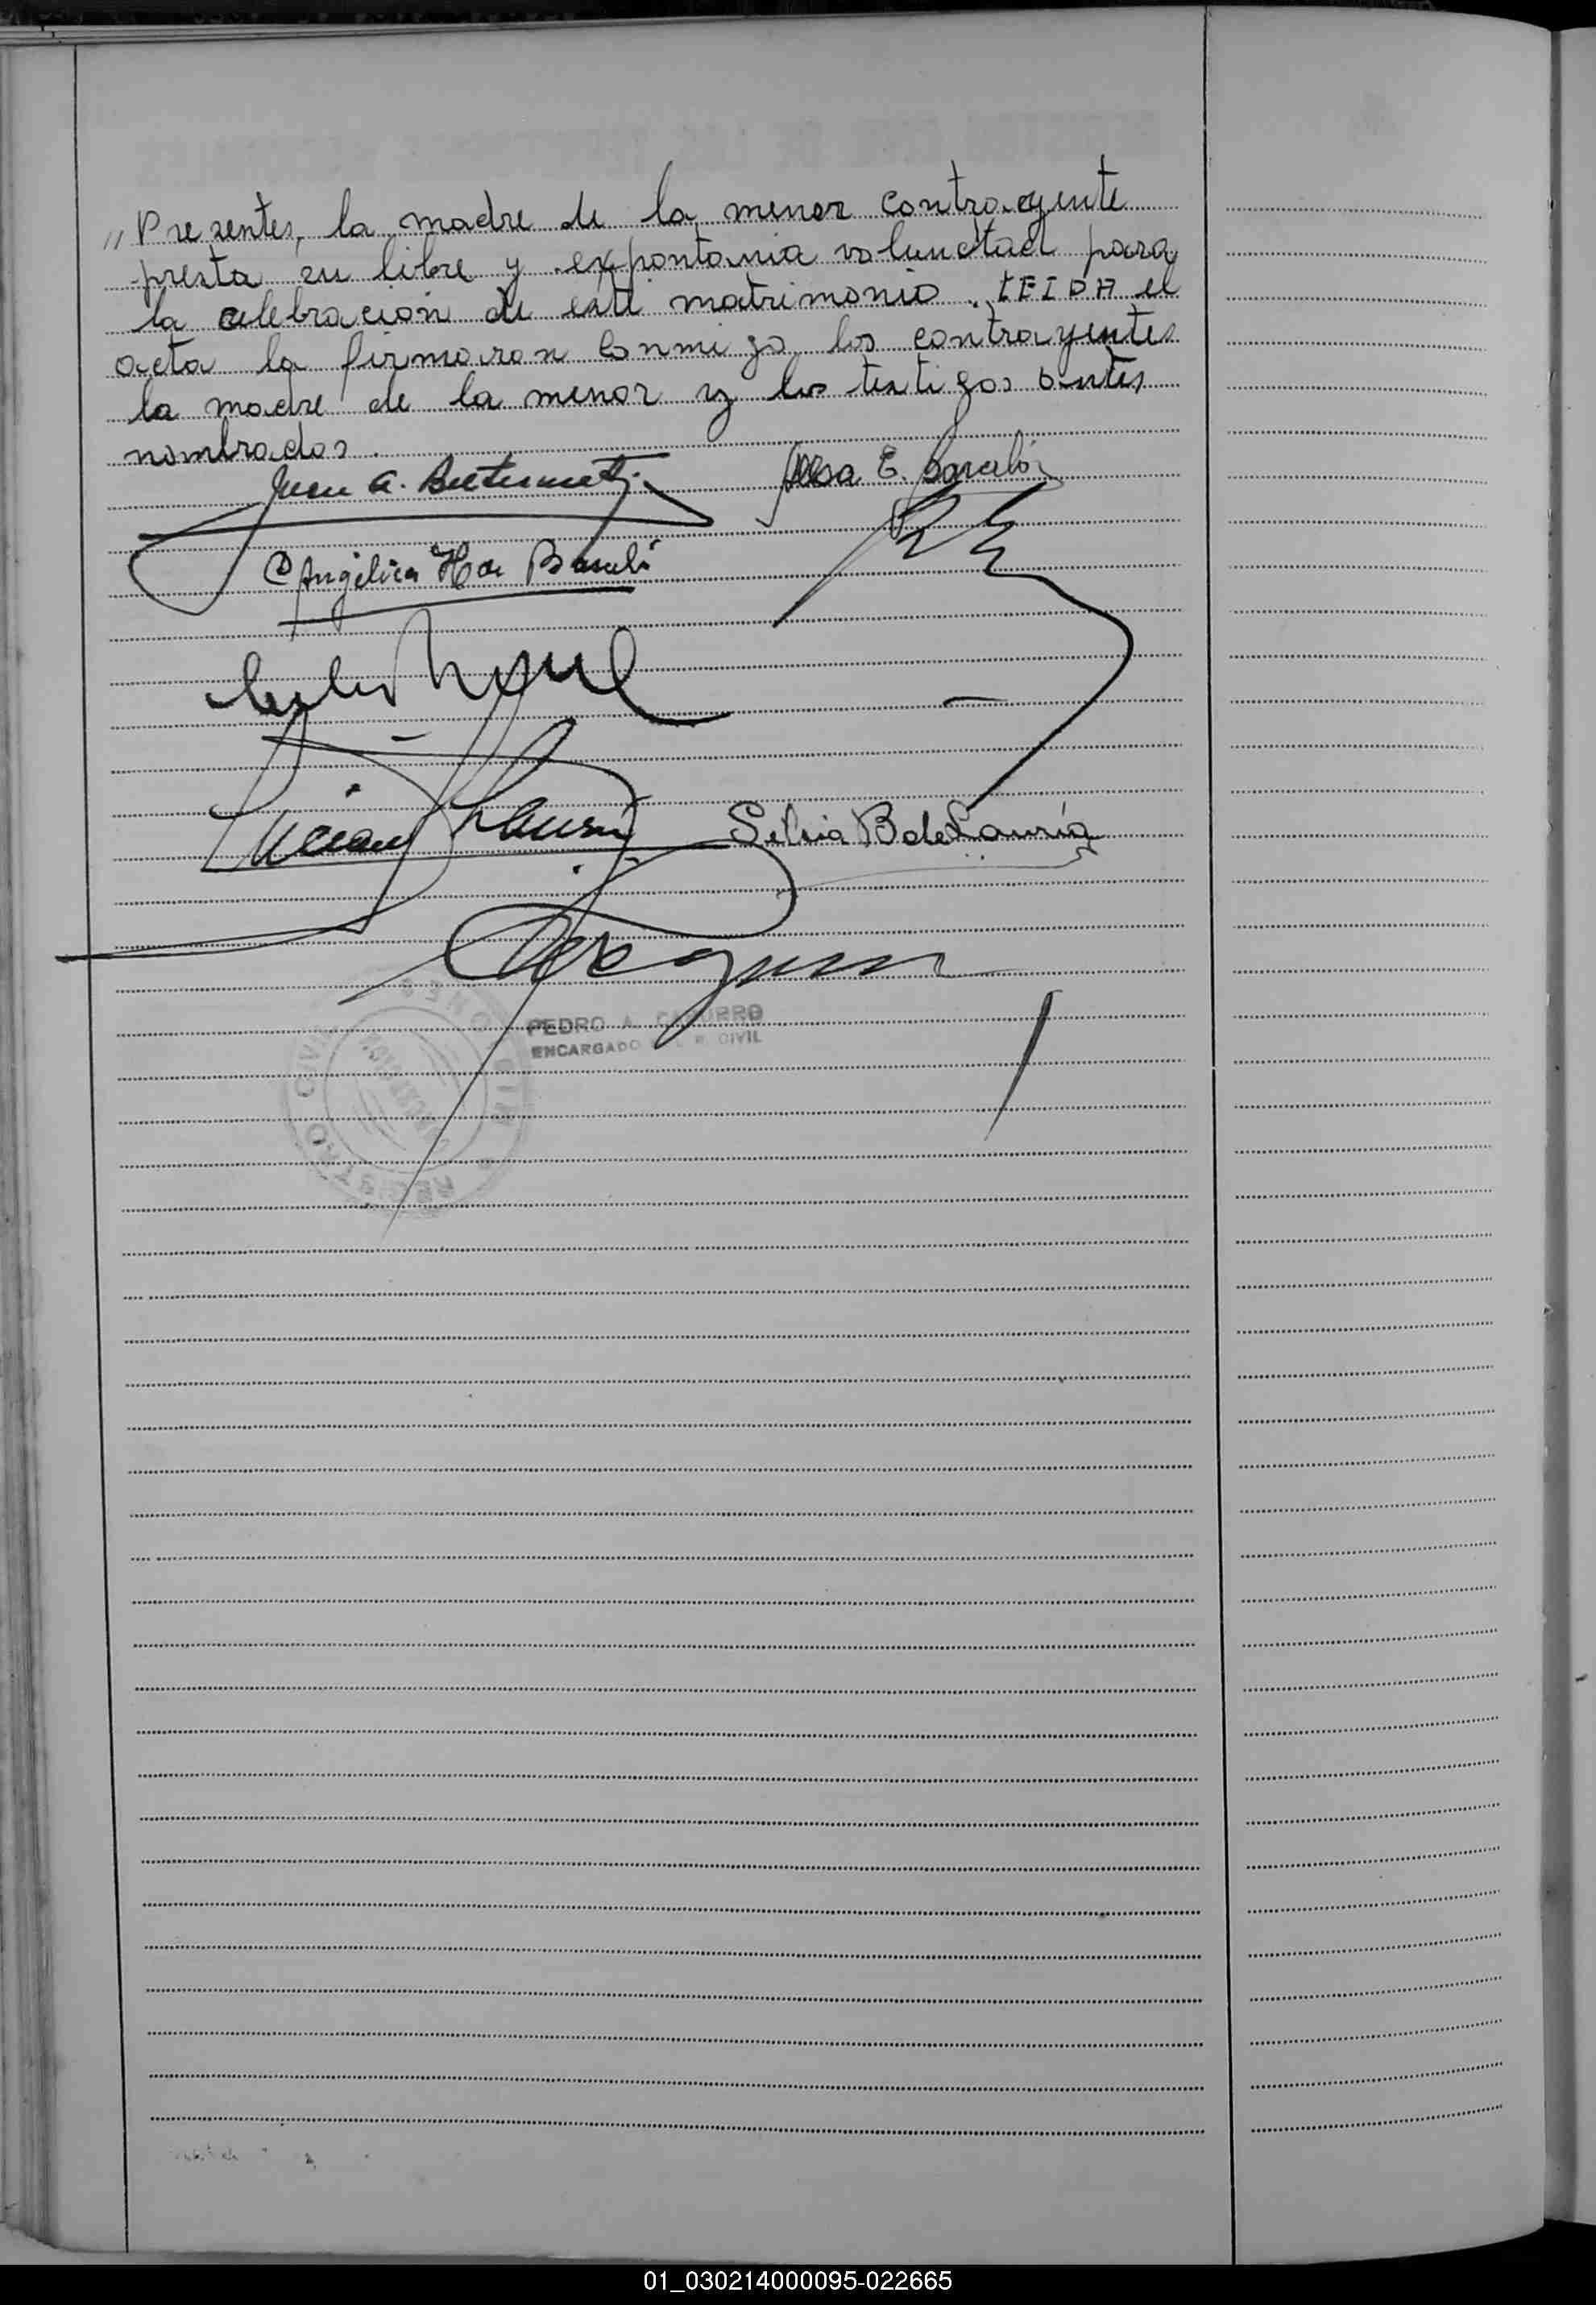 " Presentes, la madre de la menor contrayente
presta su libre y expontania volunctad para
la celebracion de este matrimonio. LEIDA el
acta la firmaron conmigo los contrayentes
la madre de la menor y los testigos antes
nombrados.
Juan A.
E.
Angélica H de
Silvia B de Lauría
PEDRO A.
ENCARGADO DEL R. CIVIL
REGISTRO CIVIL
01_030214000095-022665